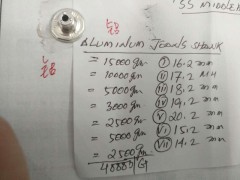 '55 MIDDLE
ALUMINIUM JEANS SHANK
= 15000 gm (I) 16.2 mm
= 10000 gm (II) 17.2 MM
= 5000 gm (III) 18.2 mm
= 3000 gm (IV) 19.2 mm
= 2500 gm (V) 20.2 mm
= 5000 gm (VI) 15.2 mm
= 2500 gm (VII) 14.2 mm